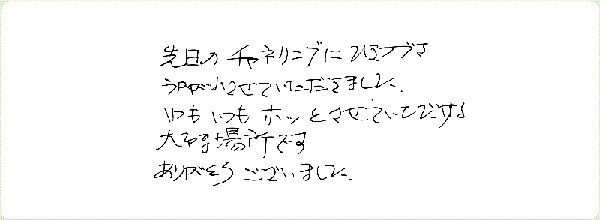 先日の チャネリングに ひきつづき
うかがわせていただきました。
いつも いつも ホッと させていただける
大切な場所です
ありがとう ございました。